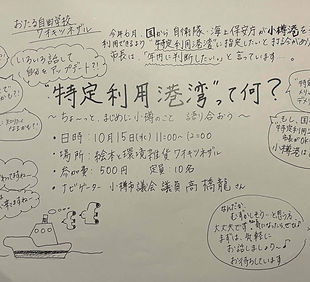 おたる自由学校
ワオキツネザル
今年6月、国から自衛隊・海上保安庁が小樽港を
利用できるよう"特定利用港湾"に指定したいと打診が
市長は、「年内に判断したい」と言っています。
いろいろお話して
自分をアップデート?!
"特定利用港湾"って何?
〜ちょーっと、まじめに小樽のこと 語り合おう〜
・日時：10月15日(水) 11:00〜12:00
・場所：絵本と環境雑貨 ワオキツネザル
・参加費：500円 定員：10名
・ナビゲーター 小樽市議会議員 高橋龍さん
もし、国
特定利用
市長がOK
小樽港は
なんだか
むずかしそう…と思う方
大丈夫です。
まずは、気軽に
お話しましょう〜♪
お待ちしています